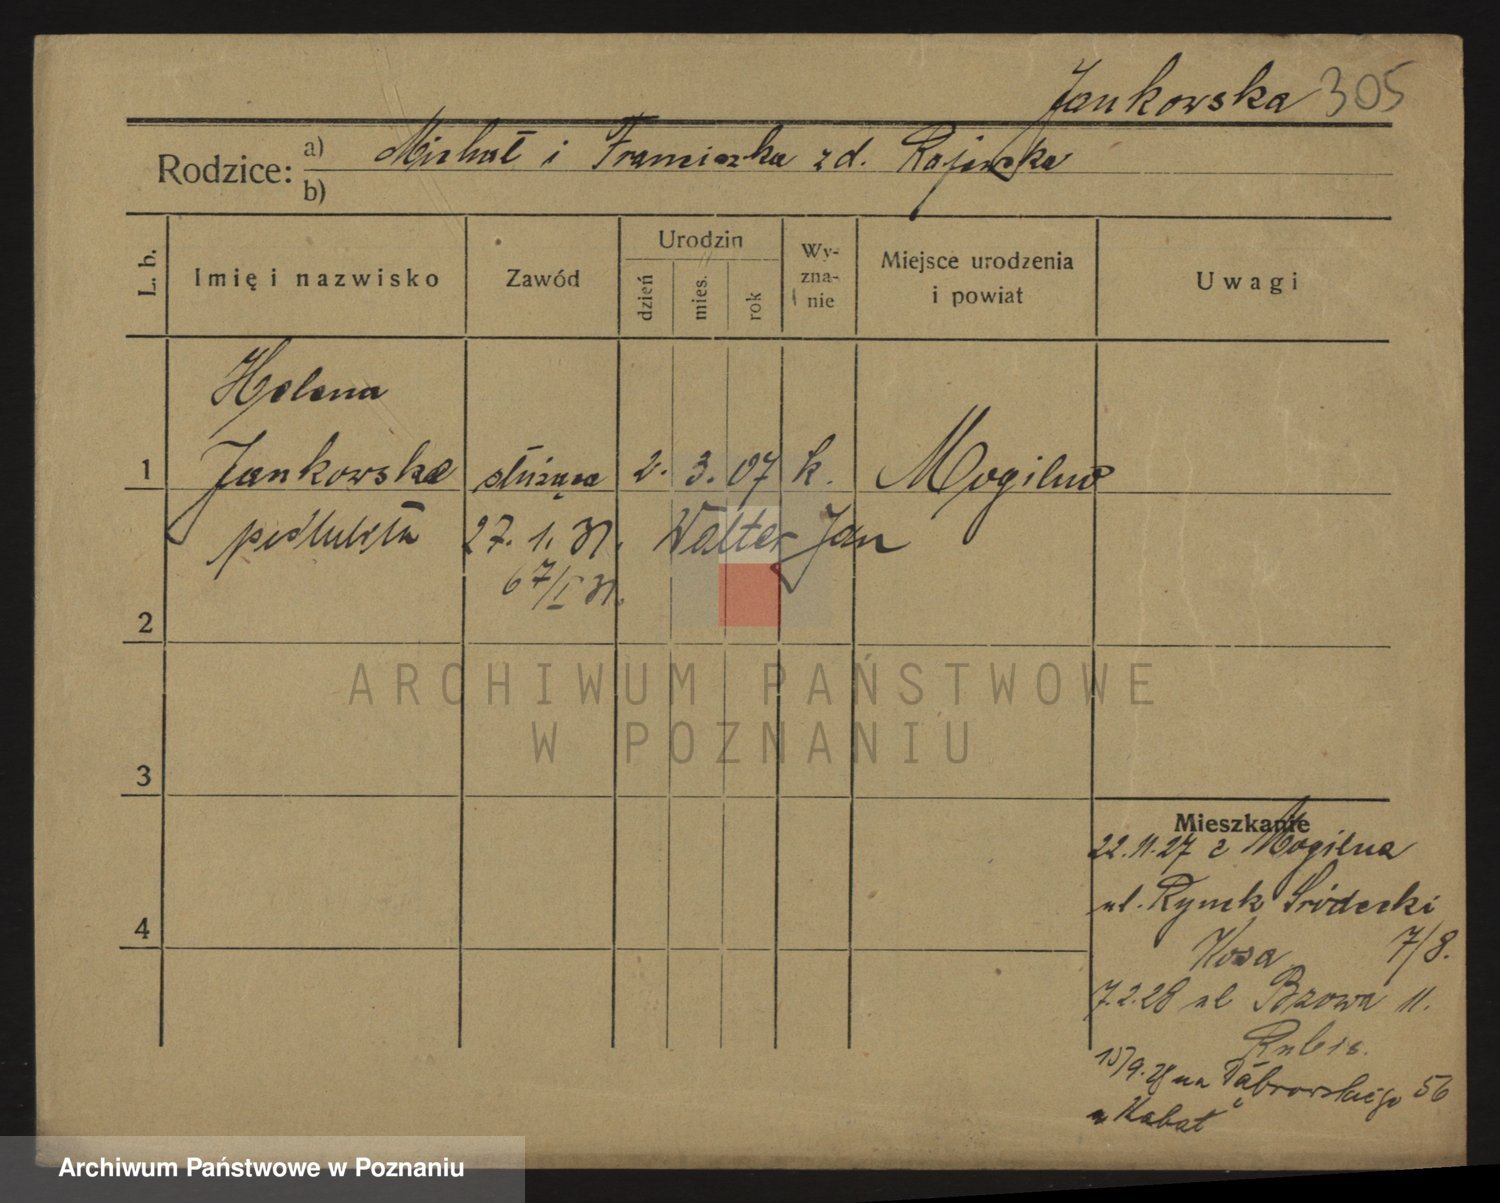 Jankowska 305
Rodzice: a) Michał i Franciszka z d. Rajewska
b)
L. b.
Imię i nazwisko
Zawód
Urodzin
dzień
mies.
rok
Wy-
zna-
nie
Miejsce urodzenia
i powiat
Uwagi
Helena
1 Jankowska służąca 2. 3. 07 k. Mogilno
poślubiła 27. 1. 31. Walter Jan
67/I 31.
2
ARCHIWUM PAŃSTWOWE
W POZNANIU
3
Mieszkanie
22.11.27 z Mogilna
ul. Rynek Śródecki
Kosa 7/8.
4
7.2.28 ul Bzowa 11.
15/9.28 na Dąbrowskiego 56
u Kabat
Archiwum Państwowe w Poznaniu